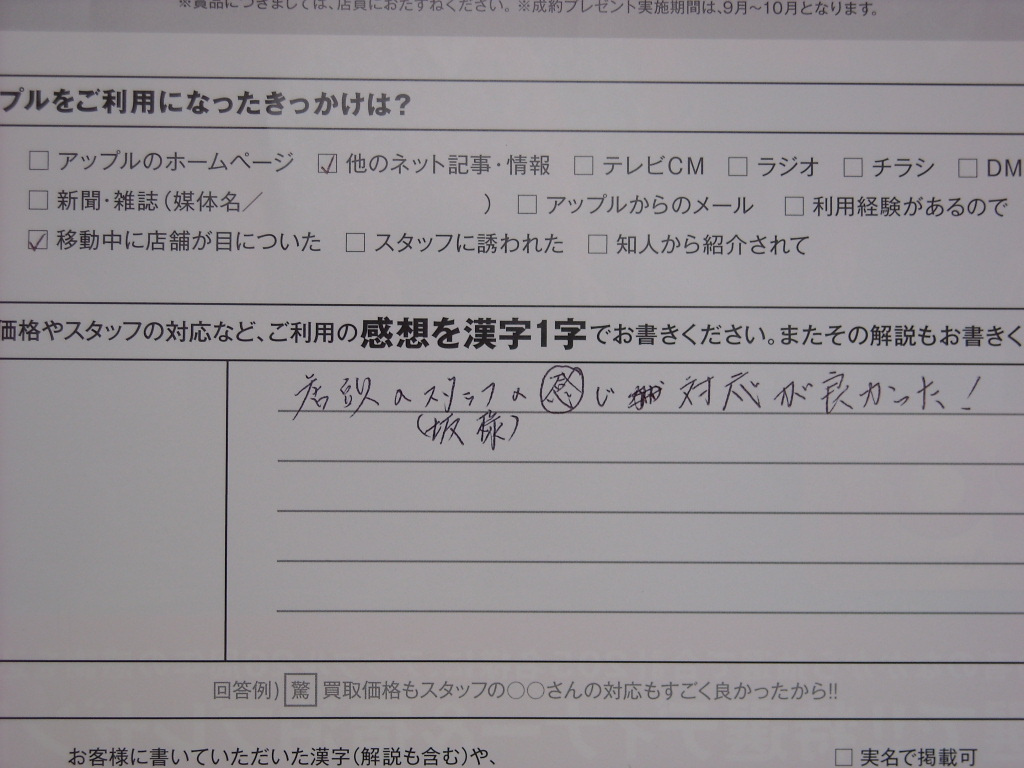 ※賞品につきましては、店員におたずねください。※成約プレゼント実施期間は、9月～10月となります。
プルをご利用になったきっかけは？
□ アップルのホームページ ☑ 他のネット記事・情報 □ テレビCM □ ラジオ □ チラシ □ DM
□ 新聞・雑誌（媒体名／ ） □ アップルからのメール □ 利用経験があるので
☑ 移動中に店舗が目についた □ スタッフに誘われた □ 知人から紹介されて
価格やスタッフの対応など、ご利用の感想を漢字1字でお書きください。またその解説もお書きく
店頭のスタッフの感じ 対応が良かった！
（坂様）
回答例）驚 買取価格もスタッフの○○さんの対応もすごく良かったから!!
お客様に書いていただいた漢字（解説も含む）や、 □ 実名で掲載可